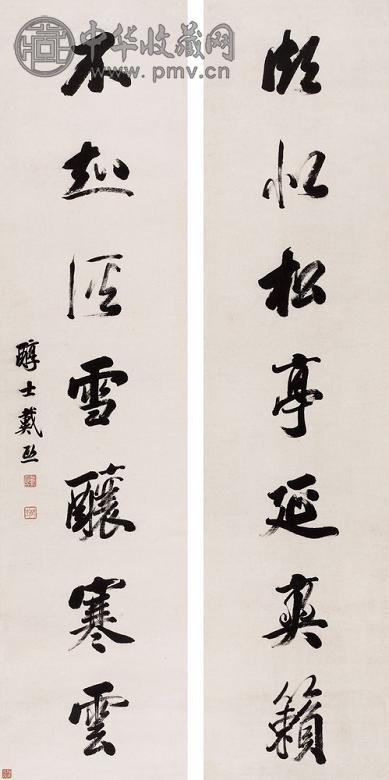 中华收藏网
www.pmv.cn
松亭延爽籟
不
雪釀寒雲
醇士戴熙